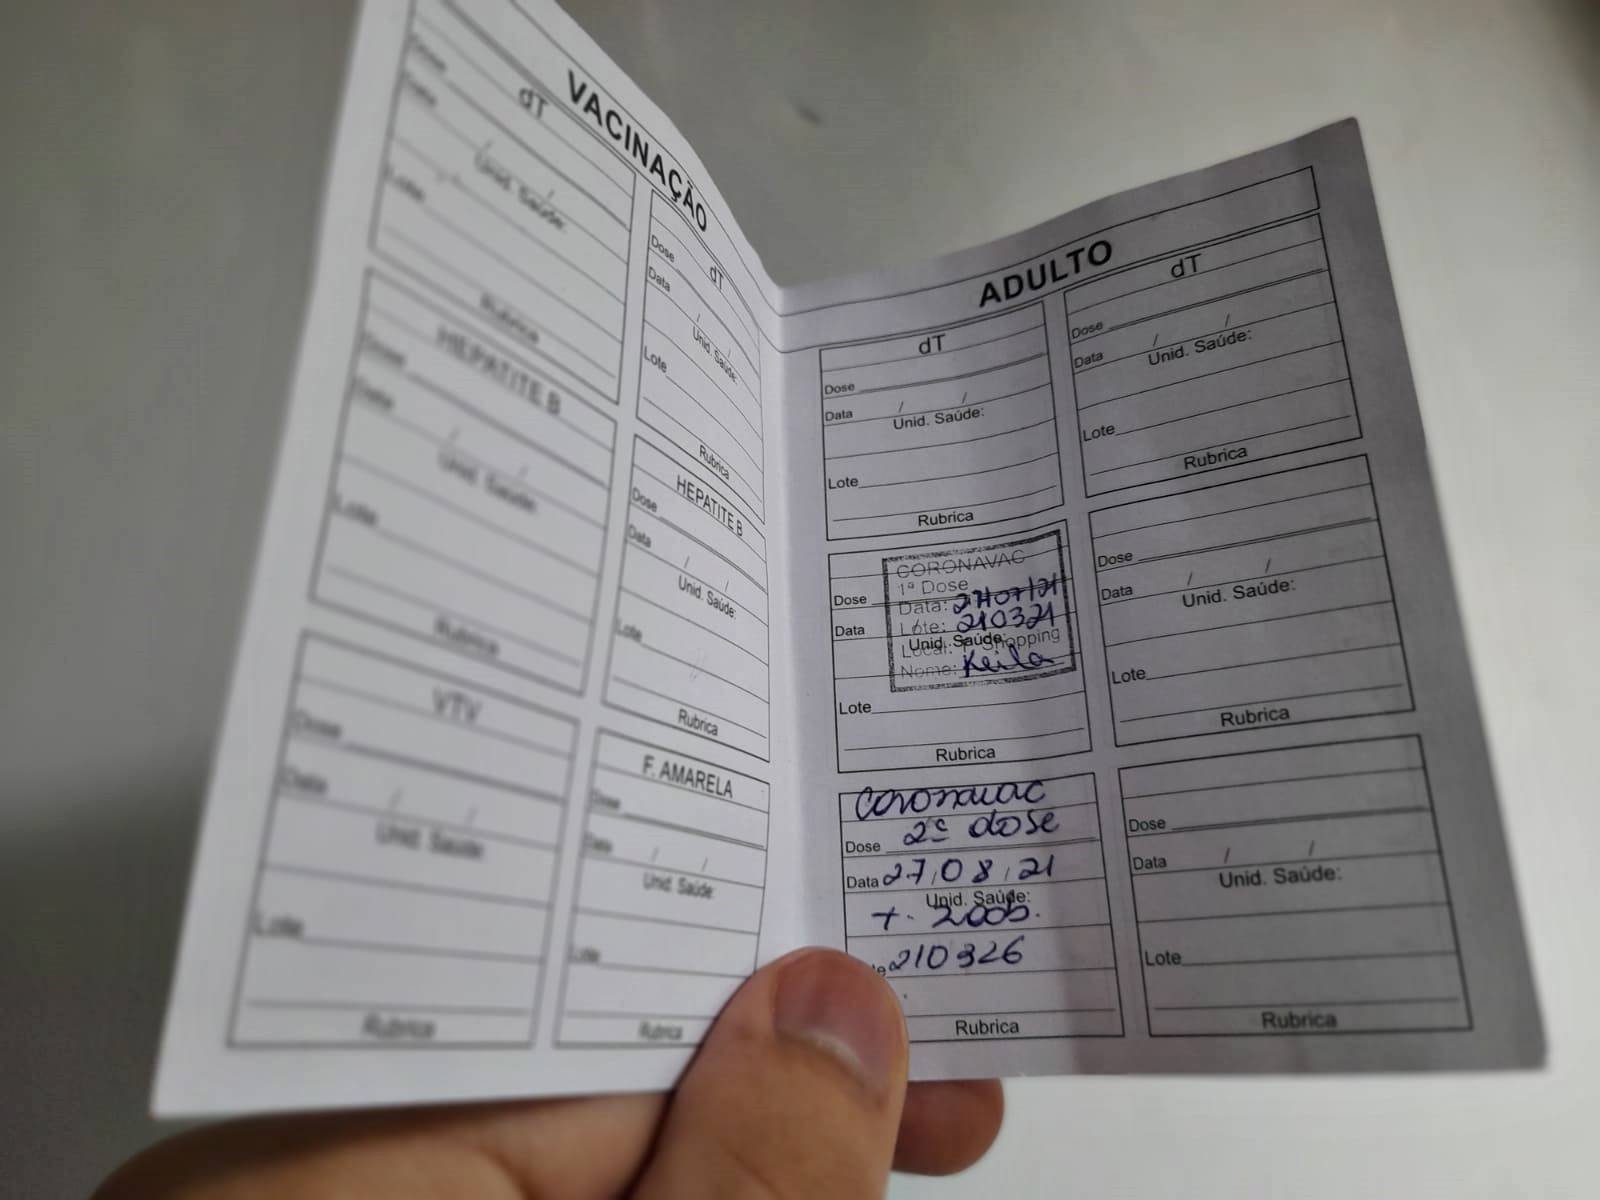 VACINAÇÃO
dT
Dose
Data / /
Unid. Saúde:
Lote
Rubrica
dT
Dose
Data / /
Unid. Saúde:
Lote
Rubrica
HEPATITE B
Dose
Data / /
Unid. Saúde:
Lote
Rubrica
HEPATITE B
Dose
Data / /
Unid. Saúde:
Lote
Rubrica
VTV
Dose
Data / /
Unid. Saúde:
Lote
Rubrica
F. AMARELA
Dose
Data / /
Unid. Saúde:
Lote
Rubrica
ADULTO
dT
Dose
Data / /
Unid. Saúde:
Lote
Rubrica
dT
Dose
Data / /
Unid. Saúde:
Lote
Rubrica
Dose
Data
Unid. Saúde:
Lote
Rubrica
CORONAVAC
1ª Dose
Data: 27/07/21
Lote: 210321
Local: Shopping
Nome: Keila
Dose
Data / /
Unid. Saúde:
Lote
Rubrica
Coronavac
Dose 2ª dose
Data 27/08/21
Unid. Saúde:
210326
Rubrica
Dose
Data / /
Unid. Saúde:
Lote
Rubrica